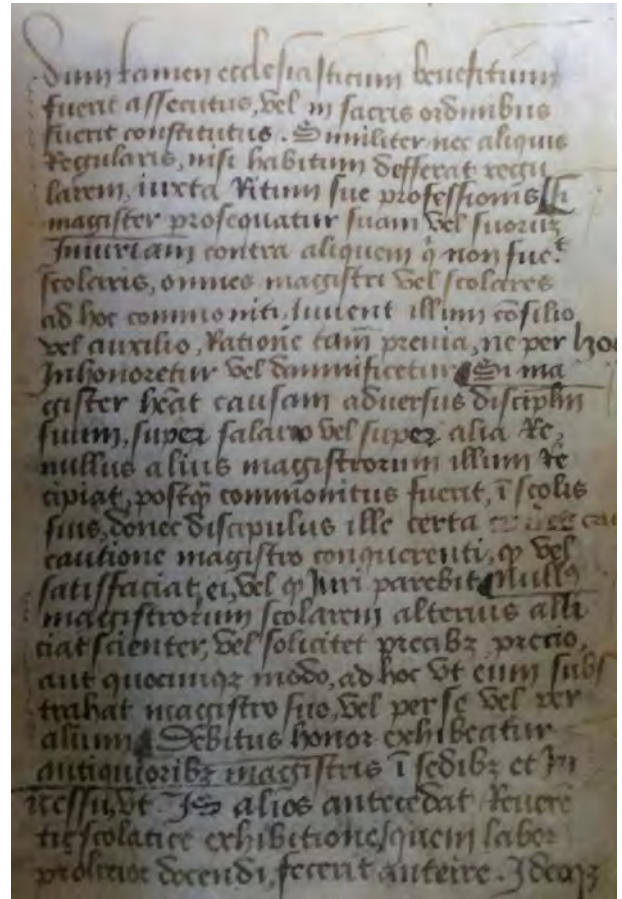 dum tamen ecclesiasticum benefitium
fuerit assecutus, vel in sacris ordinibus
fuerit constitutus. Similiter nec aliquis
Regularis, nisi habitum defferat regu
larem, iuxta Ritum sue professionis Si
magister prosequatur suam vel suoruz
Iniuriam contra aliquem q non fue.t
scolaris, omnes magistri vel scolares
ad hoc commoniti, Iuvent illum cōsilio
vel auxilio, Ratione tam̄ previa, ne per hoc
Inhonoretur vel damnificetur Si ma
gister hēat causam adversus discipłm
suum, super salario vel super alia Re,
nullus alius magistrorum illum Re
cipiat, postq̄ commonitus fuerit, ī scolis
suis, donec discipulus ille certa cau
cautione magistro conquerenti, ꝙ vel
satisfaciat, ei, vel ꝙ Iuri parebit Nullꝰ
magistrorum scolarem alterius alli
ciat scienter, vel solicitet precibꝫ precio,
aut quocumqꝫ modo, ad hoc vt eum subs
trahat magistro suo, vel per se vel per
alium Debitus honor exhibeatur
antiquioribꝫ magistris ī sedibꝫ et In
cessu, vt Is alios antecedat Revere
tie scolatice exhibitione, quem labor
prolixior docendi, fecerit anteire. Ideoqꝫ